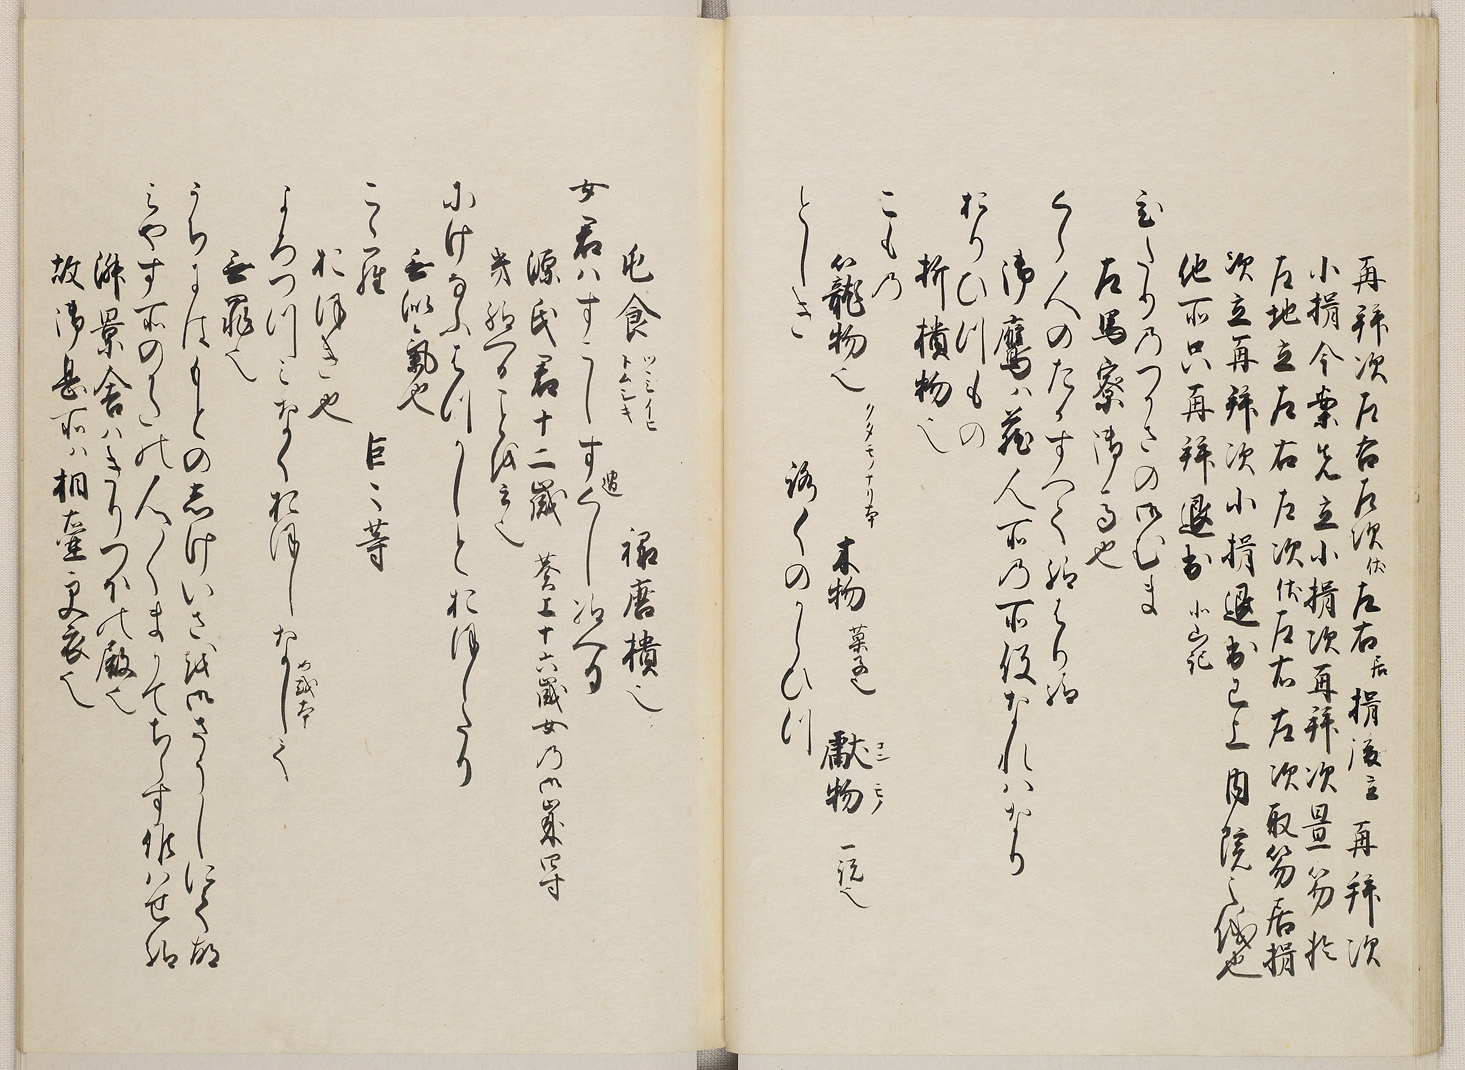 再拝次左右左次伏左右居揖後立再拝次
小揖今案先立小揖次再拝次置笏於
左地立左右左次伏左右左次取笏居揖
次立再拝次小揖退出已上内院之儀也
他所只再拝退出 小山記
ひたりのつかさの御むま
左馬寮御馬也
くら人のたかすへて給はり給
御鷹ハ蔵人所の所役なれハなり
おりひつもの
折樻物也
こもの
籠物也 クタモノナリ本 木物 菓子也 獻物 コンモノ 一説也
とんしき ろくのからひつ
屯食 ツミイヒ トムシキ 禄唐樻也
女君ハすこしすくし遣給へる
源氏君十二歳 葵上十六歳女の御歳四
幾給へることを云也
にけなふはつかしとおほしたり
無似気也
こゝら 巨々等
おほき也
よろつつみなくおほしなして
無罪也
うちにはもとのしけいさを御さうしにて故
みやす所の御かたの人々まかてちらすさふらハせ給
淑景舎ハきりつほの殿也
故御息所ハ桐壷更衣也